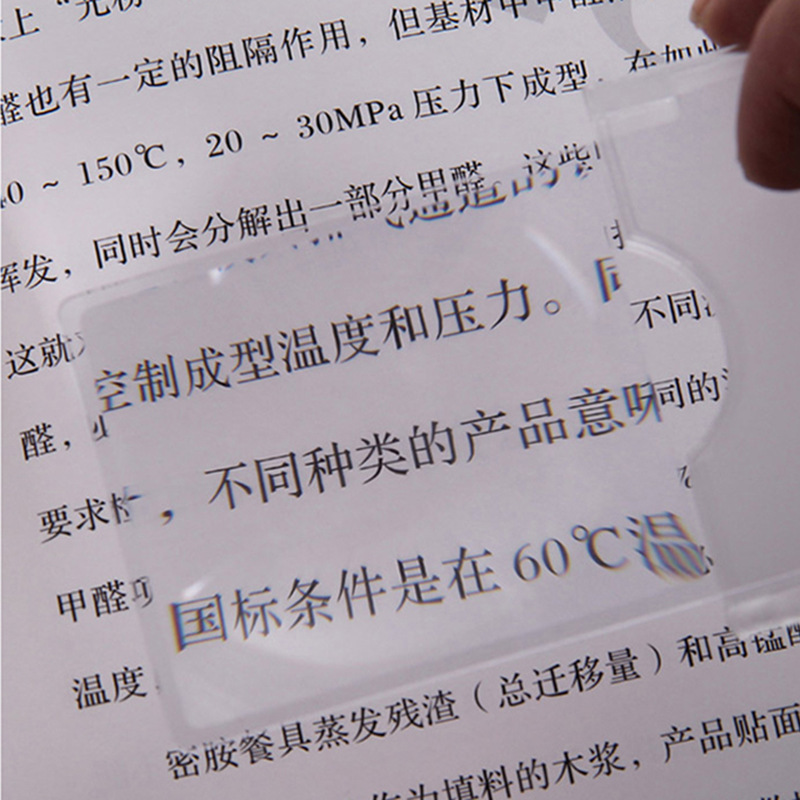 上“光粉
醛也有一定的阻隔作用，但基材中甲醛
40 ~ 150℃，20 ~ 30MPa 压力下成型。在如此
挥发，同时会分解出一部分甲醛。这些
这就
控制成型温度和压力。同
不同
醛，
，不同种类的产品意味
同的
要求检
国标条件是在 60℃温
甲醛项
温度
密胺餐具蒸发残渣（总迁移量）和高锰酸
作为填料的木浆，产品贴面